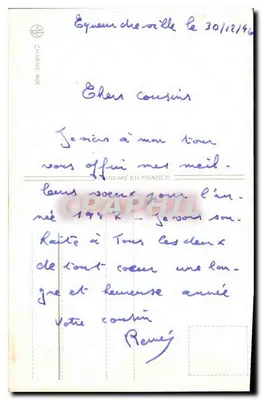 Equeurdreville le 30/12/96
Chers cousins
Je viens à mon tour
vous offrir mes meil-
IMPRIMÉ EN FRANCE
leurs voeux pour l'an-
née 1997 - Je vous sou-
haite à tous les deux
de tout coeur une lon-
gue et heureuse année
Votre cousin
René